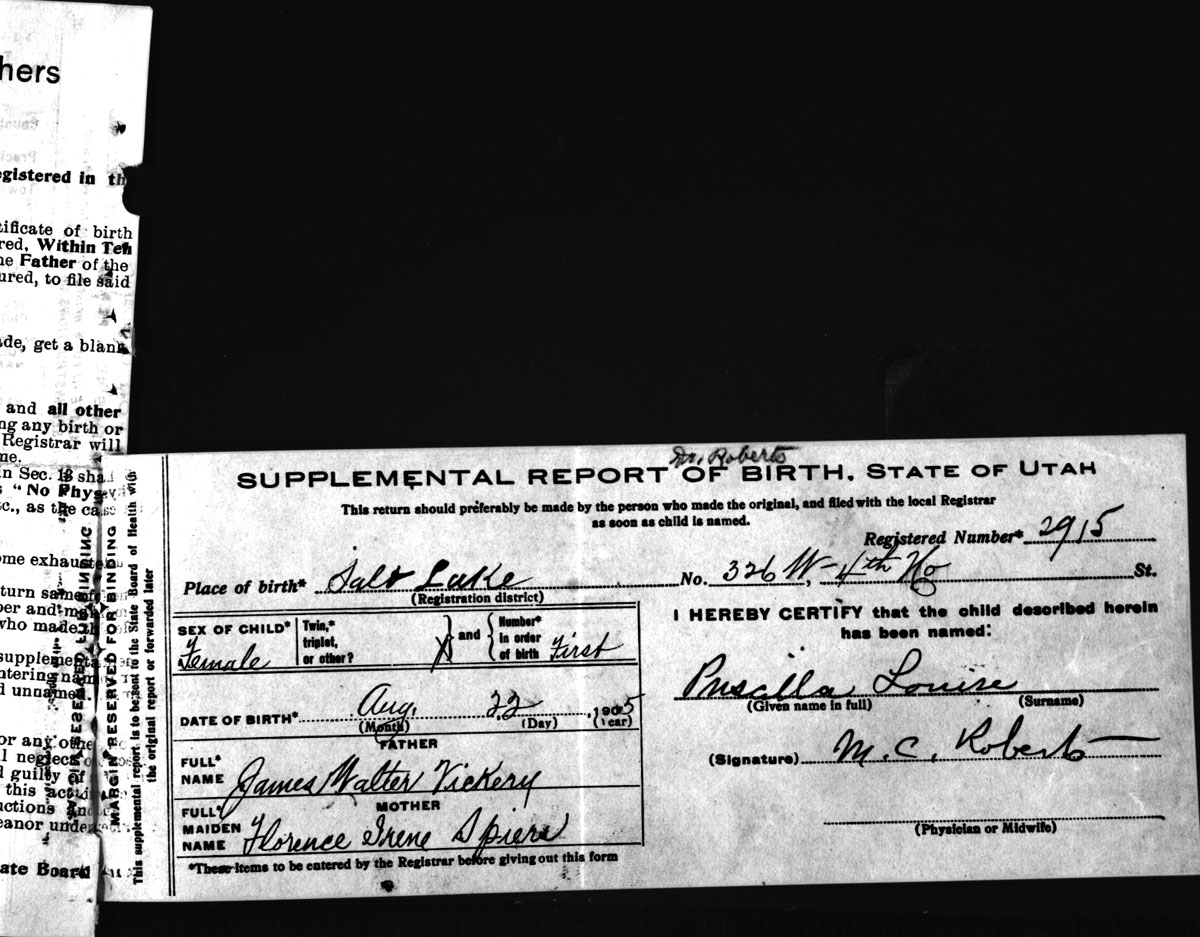 hers
egistered in th
tificate of birth
red, Within Ten
he Father of the
ured, to file said
de, get a blank
and all other
ng any birth or
Registrar will
me.
n Sec. 13 shall
"No Phys
c., as the cas
ome exhauste
turn same
ber and
who made th
supplementa
ntering nam
d unnamed.
or any othe
l neglect o
d guilty of
this act
uctions and
eanor under
ate Board
MARGIN RESERVED FOR BINDING
This supplemental report is to be sent to the State Board of Health with
the original report or forwarded later
Dr. Roberts
SUPPLEMENTAL REPORT OF BIRTH, STATE OF UTAH
This return should preferably be made by the person who made the original, and filed with the local Registrar
as soon as child is named.
Registered Number* 2915
Place of birth* Salt Lake No. 326 W- 4th No St.
(Registration district)
SEX OF CHILD* Female
Twin,* triplet, or other? X and Number* in order of birth First
DATE OF BIRTH* Aug. 22, 1905
(Month) (Day) (Year)
FATHER
FULL* NAME James Walter Vickery
MOTHER
FULL* MAIDEN NAME Florence Irene Spiers
*These items to be entered by the Registrar before giving out this form
I HEREBY CERTIFY that the child described herein
has been named:
Priscilla Louise
(Given name in full) (Surname)
(Signature) M. C. Roberts
(Physician or Midwife)